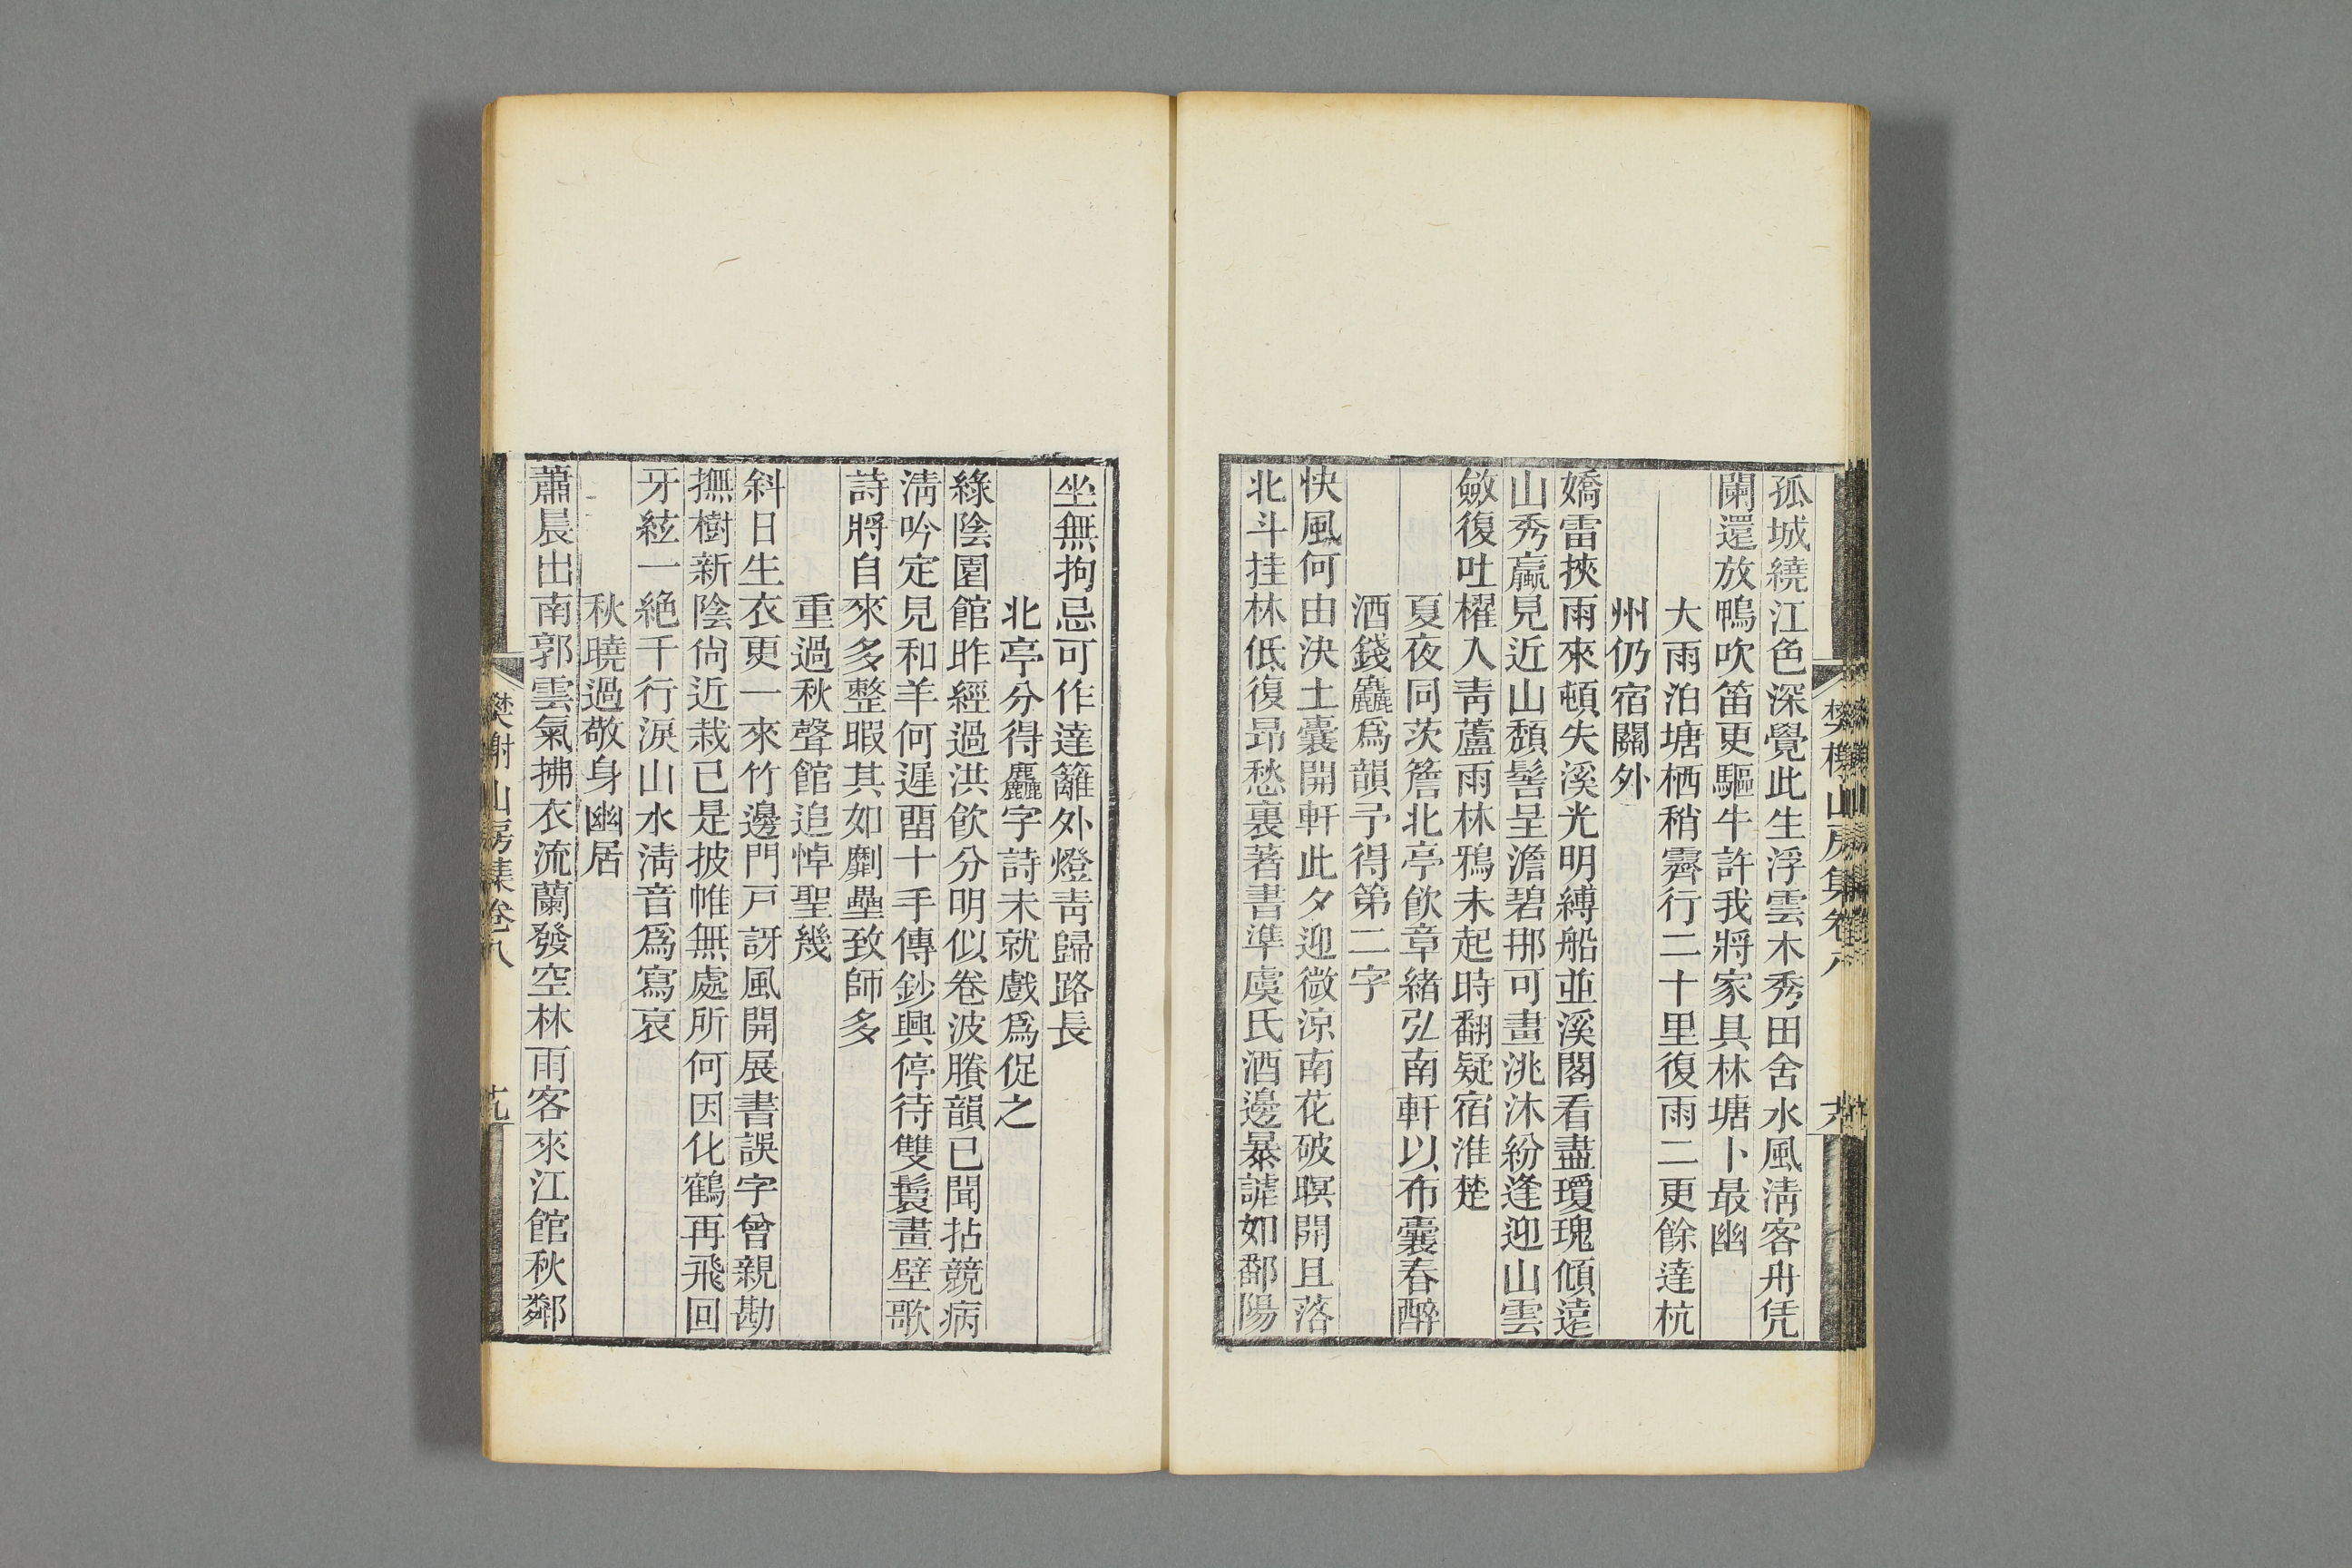 孤城繞江色深覺此生浮雲木秀田舍水風淸客舟凭
闌還放鴨吹笛更驅牛許我將家具林塘卜最幽
大雨泊塘栖稍霽行二十里復雨二更餘達杭
州仍宿關外
嬌雷挾雨來頓失溪光明縛船並溪閣看盡瓊瑰傾遠
山秀羸見近山頽髻呈澹碧挪可畫洮沐紛逢迎山雲
斂復吐櫂入靑蘆雨林鴉未起時翻疑宿淮楚
夏夜同茨簷北亭飮章緒弘南軒以布囊春醉
酒錢麤爲韻予得第二字
快風何由決土囊開軒此夕迎微涼南花破暝開且落
北斗挂林低復昻愁裏著書準虞氏酒邊暴謔如鄱陽
樊榭山房集卷八
坐無拘忌可作達籬外燈靑歸路長
北亭分得麤字詩未就戲爲促之
綠陰園館昨經過洪飮分明似卷波賸韻已聞拈競病
淸吟定見和羊何遲畱十手傳鈔興停待雙鬟畫壁歌
詩將自來多整暇其如劘壘致師多
重過秋聲館追悼聖幾
斜日生衣更一來竹邊門戸訝風開展書誤字曾親勘
撫樹新陰尙近栽已是披帷無處所何因化鶴再飛回
牙絃一絶千行淚山水淸音爲寫哀
秋曉過敬身幽居
蕭晨出南郭雲氣拂衣流蘭發空林雨客來江館秋鄰
樊榭山房集卷八